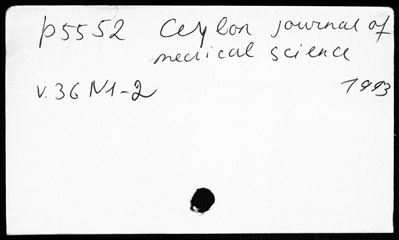 p5552 Ceylon journal of
medical science
v.36 N1-2 1993